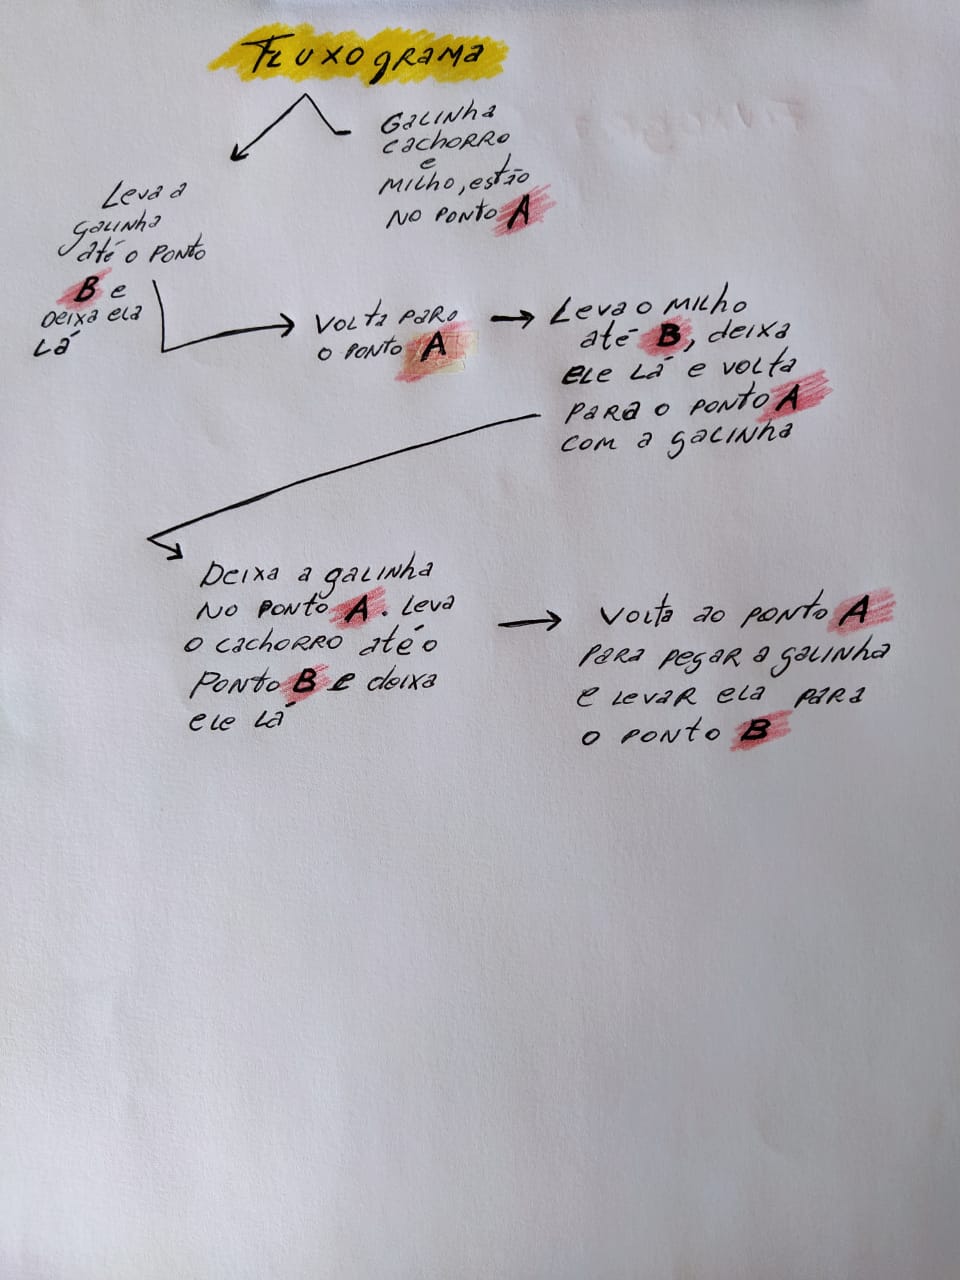 Fluxograma
Galinha
cachorro
e
milho, estão
no ponto A
Leva a
galinha
até o ponto
B e
deixa ela
lá
Volta paro
o ponto A
Leva o milho
até B, deixa
ele lá e volta
para o ponto A
com a galinha
Deixa a galinha
no ponto A. Leva
o cachorro até o
Ponto B e deixa
ele lá
Volta ao ponto A
para pegar a galinha
e levar ela para
o ponto B